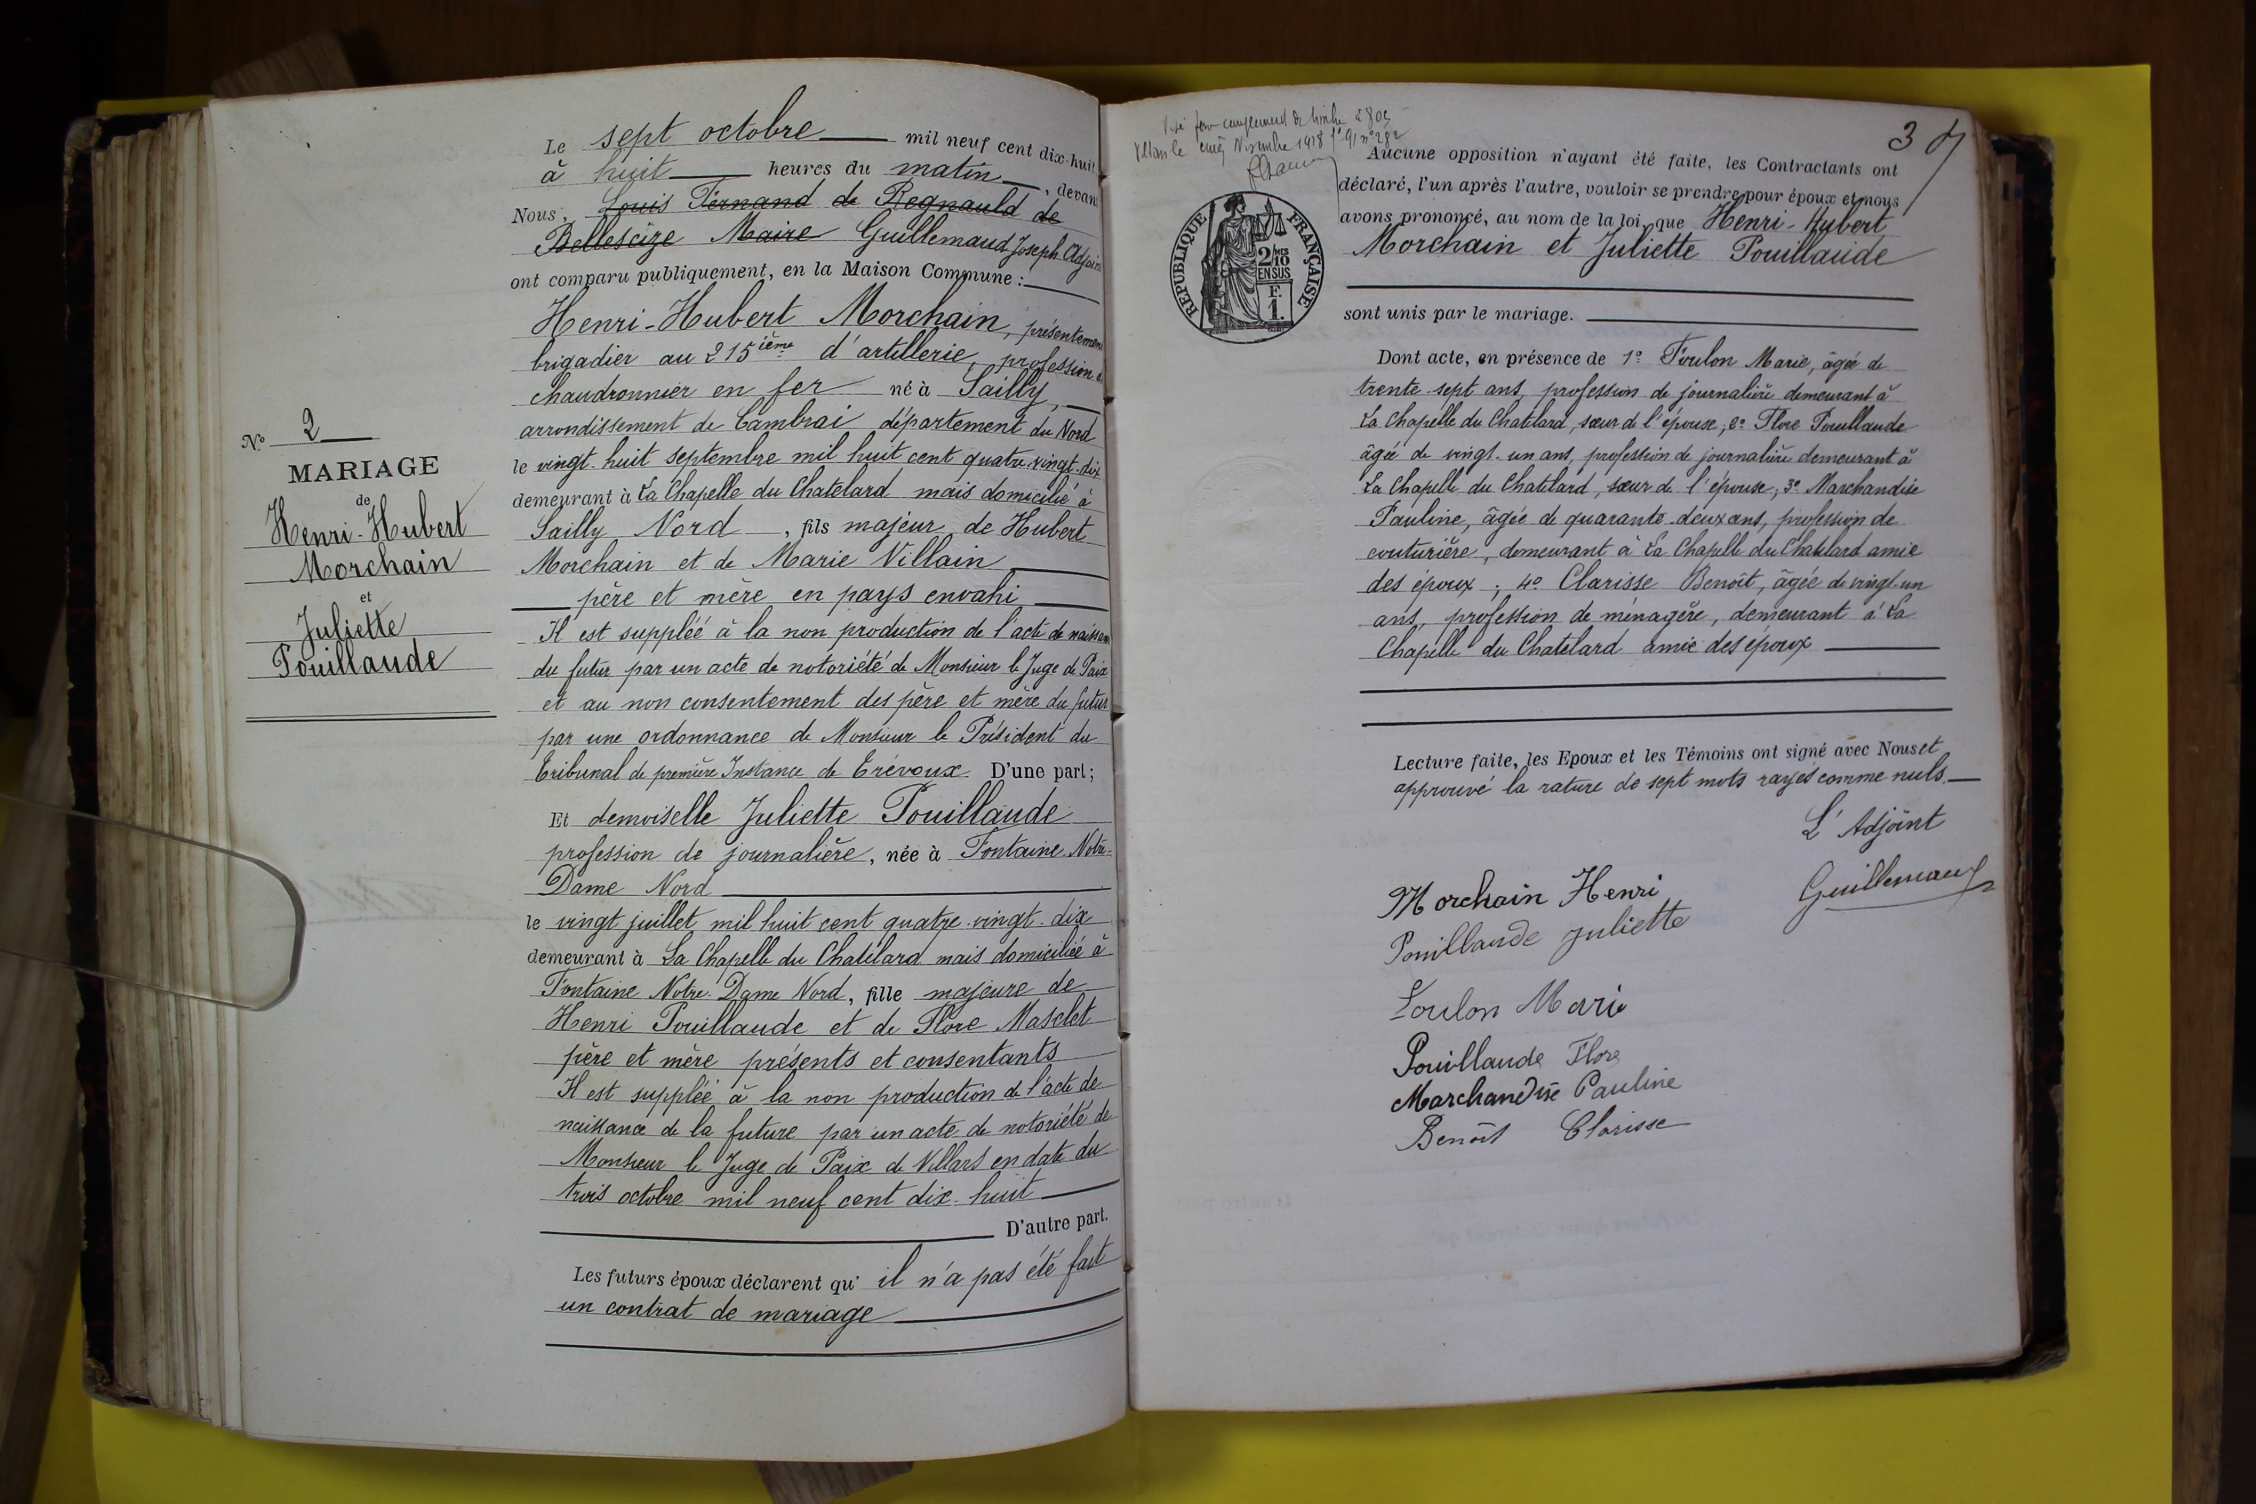 Le sept octobre mil neuf cent dix-huit
à huit heures du matin, devant
Nous, Louis Fernand de Regnauld de
Bellescize Maire Guillemaud Joseph Adjoint
ont comparu publiquement, en la Maison Commune :
Henri-Hubert Morchain, présentement
brigadier au 215ième d'artillerie, profession de
chaudronnier en fer né à Sailly,
arrondissement de Cambrai département du Nord
le vingt-huit septembre mil huit cent quatre-vingt-dix
demeurant à La Chapelle du Chatelard mais domicilié à
Sailly Nord, fils majeur de Hubert
Morchain et de Marie Villain
père et mère en pays envahi
Il est suppléé à la non production de l'acte de naissance
du futur par un acte de notoriété de Monsieur le Juge de Paix
et au non consentement des père et mère du futur
par une ordonnance de Monsieur le Président du
Tribunal de première Instance de Trévoux. D'une part ;
Et demoiselle Juliette Pouillaude
profession de journalière, née à Fontaine Notre-
Dame Nord
le vingt juillet mil huit cent quatre-vingt-dix
demeurant à La Chapelle du Chatelard mais domiciliée à
Fontaine Notre-Dame Nord, fille majeure de
Henri Pouillaude et de Flore Masclet
père et mère présents et consentants
Il est suppléé à la non production de l'acte de
naissance de la future par un acte de notoriété de
Monsieur le Juge de Paix de Villars en date du
trois octobre mil neuf cent dix-huit
D'autre part.
Les futurs époux déclarent qu' il n'a pas été fait
un contrat de mariage
No 2
MARIAGE
de
Henri-Hubert
Morchain
et
Juliette
Pouillaude
Visé pour complément de timbre
Villars le cinq Novembre 1918
3
Aucune opposition n'ayant été faite, les Contractants ont
déclaré, l'un après l'autre, vouloir se prendre pour époux et nous
avons prononcé, au nom de la loi, que Henri-Hubert
Morchain et Juliette Pouillaude
RÉPUBLIQUE FRANÇAISE
2/10
EN SUS
F.
1.
sont unis par le mariage.
Dont acte, en présence de 1º Toulon Marie, âgée de
trente-sept ans, profession de journalière demeurant à
La Chapelle du Chatelard, sœur de l'épouse, 2º Flore Pouillaude
âgée de vingt-un ans, profession de journalière demeurant à
La Chapelle du Chatelard, sœur de l'épouse ; 3º Marchandise
Pauline, âgée de quarante-deux ans, profession de
couturière, demeurant à La Chapelle du Chatelard amie
des époux ; 4º Clarisse Benoît, âgée de vingt-un
ans, profession de ménagère, demeurant à La
Chapelle du Chatelard amie des époux
Lecture faite, les Epoux et les Témoins ont signé avec Nous et
approuvé la rature de sept mots rayés comme nuls.
L'Adjoint
Guillemaud
Morchain Henri
Pouillaude Juliette
Toulon Marie
Pouillaude Flore
Marchandise Pauline
Benoît Clarisse